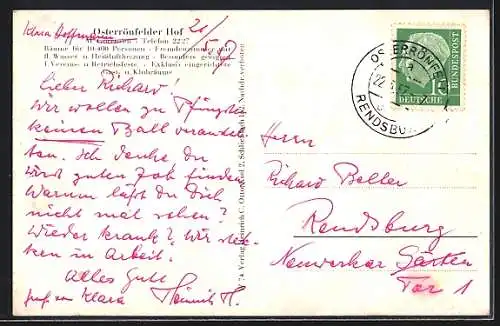 Klara Hoffmann
20/5.
Osterrönfelder Hof
Telefon 2227
Räume für 10-400 Personen - Fremdenzimmer mit
fl. Wasser u. Heißluftheizung - Besonders geeignet
f. Vereins- u. Betriebsfeste - Exklusiv eingerichtete
Gast- u. Klubräume
Lieber Richard!
Wir wollen zu Pfingsten
keinen Ball veranstal-
ten. Ich denke Du
wirst guten Job finden
Warum läßt Du Dich
nicht mal sehen?
Wieder krank? Wir stek-
ken in Arbeit.
Alles Gute
Klara Heinrich H.
Nachdr. verboten
Verlag Heinrich C.
OSTERRÖNFELD
RENDSBURG
10
DEUTSCHE
BUNDESPOST
Herrn
Richard Beller
Rendsburg
Neuwerker Gärten
Tor 1